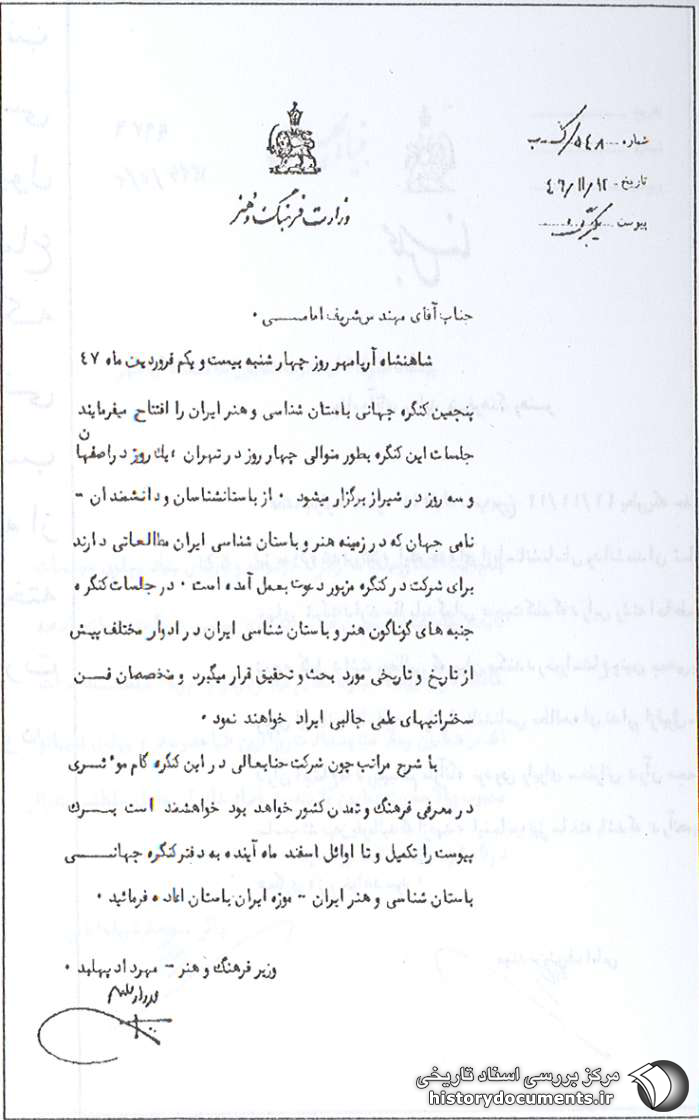 شماره ۵۴۸/ک ب
تاریخ ۴۶/۱۱/۱۲
پیوست یکبرگ
وزارت فرهنگ و هنر
جناب آقای مهندس شریف امامی ۰
شاهنشاه آریامهر روز چهار شنبه بیست و یکم فروردین ماه ۴۷
پنجمین کنگره جهانی باستان شناسی و هنر ایران را افتتاح میفرمایند
جلسات این کنگره بطور متوالی چهار روز در تهران ، یک روز در اصفهان
و سه روز در شیراز برگزار میشود ۰ از باستانشناسان و دانشمندان -
نامی جهان که در زمینه هنر و باستان شناسی ایران مطالعاتی دارند
برای شرکت در کنگره مزبور دعوت بعمل آمده است ۰ در جلسات کنگره
جنبه های گوناگون هنر و باستان شناسی ایران در ادوار مختلف پیش
از تاریخ و تاریخی مورد بحث و تحقیق قرار میگیرد و متخصصان فن
سخنرانیهای علمی جالبی ایراد خواهند نمود ۰
با شرح مراتب چون شرکت جنابعالی در این کنگره گام موثری
در معرفی فرهنگ و تمدن کشور خواهد بود خواهشمند است برگ
پیوست را تکمیل و تا اوائل اسفند ماه آینده به دفتر کنگره جهانی
باستان شناسی و هنر ایران - موزه ایران باستان اعاده فرمائید ۰
وزیر فرهنگ و هنر - مهرداد پهلبد ۰
مرکز بررسی اسناد تاریخی
historydocuments.ir